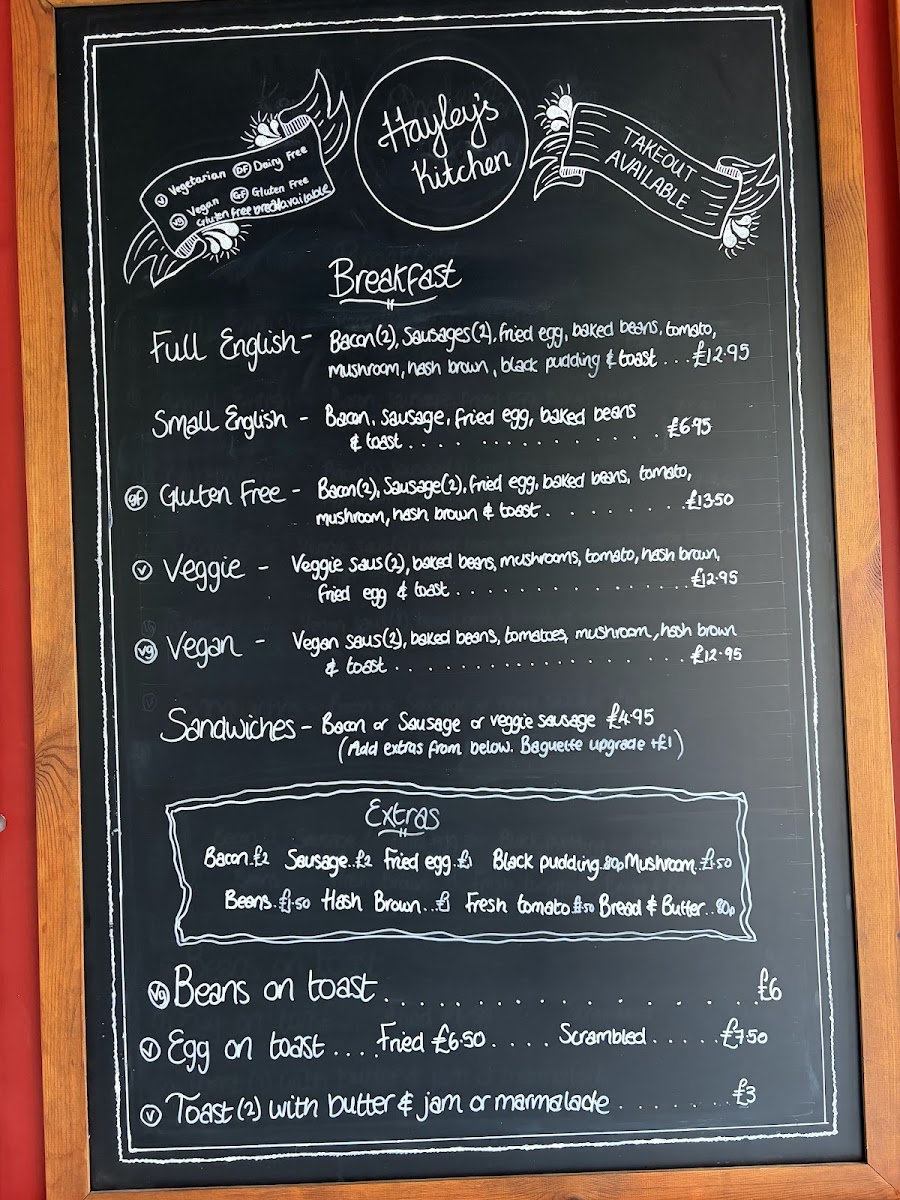 Hayley's
Kitchen
V Vegetarian DF Dairy Free
Vg Vegan GF Gluten Free
Gluten free bread available
TAKEOUT
AVAILABLE
Breakfast
Full English - Bacon(2), Sausages(2), fried egg, baked beans, tomato,
mushroom, hash brown, black pudding & toast ... £12.95
Small English - Bacon, Sausage, fried egg, baked beans
& toast . . . . . . . . . . . . . . . . £6.95
gf Gluten Free - Bacon(2), Sausage(2), fried egg, baked beans, tomato,
mushroom, hash brown & toast . . . . . . . . £13.50
V Veggie - Veggie saus(2), baked beans, mushrooms, tomato, hash brown,
fried egg & toast . . . . . . . . . . . . . . . . £12.95
Vg Vegan - Vegan saus(2), baked beans, tomatoes, mushroom, hash brown
& toast . . . . . . . . . . . . . . . . . . . . £12.95
Sandwiches - Bacon or Sausage or veggie sausage £4.95
(Add extras from below. Baguette upgrade +£1)
Extras
Bacon.£2 Sausage..£2 Fried egg.£1 Black pudding.80p Mushroom.£1.50
Beans.£1.50 Hash Brown..£1 Fresh tomato Bread & Butter..80p
Vg Beans on toast . . . . . . . . . . . . . . . . £6
V Egg on toast .... Fried £6.50 .... Scrambled ..... £7.50
V Toast (2) with butter & jam or marmalade . . . . . . . £3